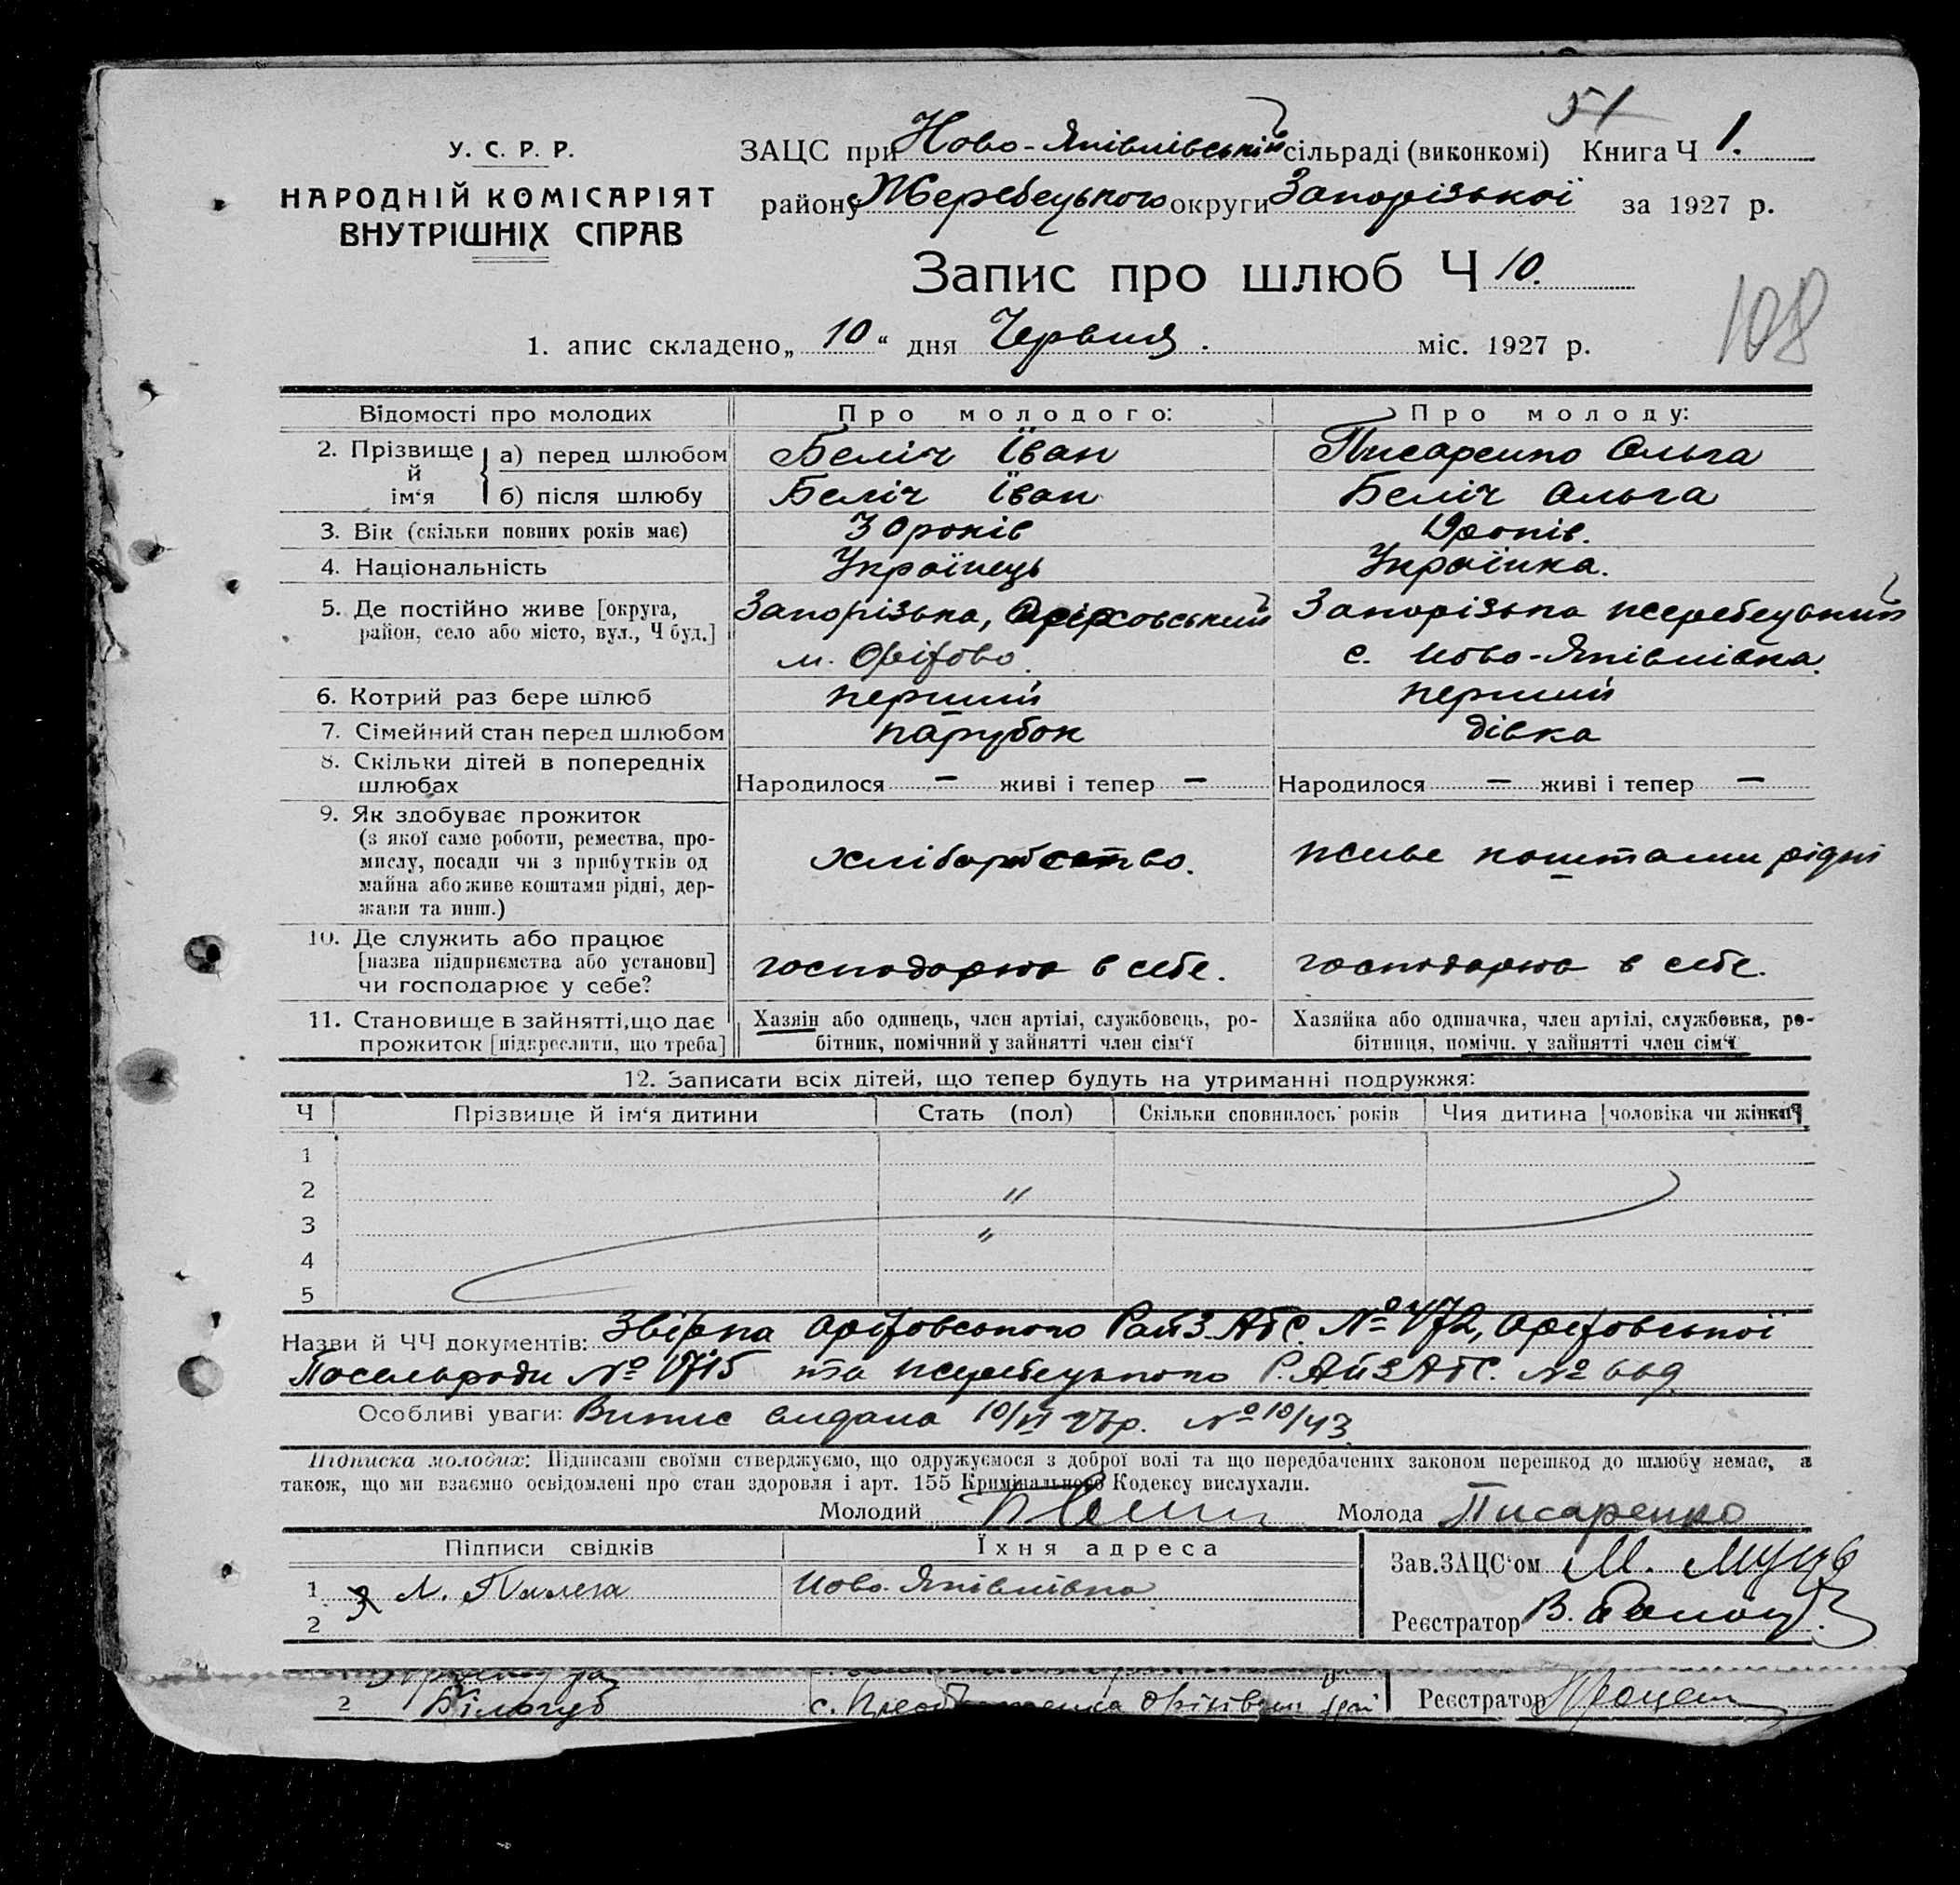 51
У. С. Р. Р.
НАРОДНІЙ КОМІСАРІЯТ
ВНУТРІШНІХ СПРАВ
ЗАЦС при Ново-Яківлівській сільраді (виконкомі) Книга Ч 1.
району Жеребецького округи Запорізької за 1927 р.
Запис про шлюб Ч 10.
108
1. апис складено „ 10 “ дня Червня . міс. 1927 р.
Відомості про молодих Про молодого: Про молоду:
2. Прізвище й ім‘я
а) перед шлюбом Беліч Їван Писаренко Ольга
б) після шлюбу Беліч Їван Беліч Ольга
3. Вік (скільки повних років має) 30 років 19 років.
4. Національність Українець Українка.
5. Де постійно живе [округа, Запорізька, Оріховський Запорізька жеребецький
район, село або місто, вул., Ч буд.] м. Оріхово. с. Ново-Яківлівка.
6. Котрий раз бере шлюб перший перший
7. Сімейний стан перед шлюбом парубок дівка
8. Скільки дітей в попередніх
шлюбах Народилося — живі і тепер — Народилося — живі і тепер —
9. Як здобуває прожиток
(з якої саме роботи, ремества, про-
мислу, посади чи з прибутків од хліборобство. живе коштами рідні
майна або живе коштами рідні, дер-
жави та инш.)
10. Де служить або працює
[назва підприємства або установи] господарює в себе. господарює в себе.
чи господарює у себе?
11. Становище в зайнятті, що дає Хазяїн або одинець, член артілі, службовець, ро- Хазяйка або одиначка, член артілі, службовка, ро-
прожиток [підкреслити, що треба] бітник, помічний у зайнятті член сім‘ї бітниця, помічн. у зайнятті член сім‘ї
12. Записати всіх дітей, що тепер будуть на утриманні подружжя:
Ч Прізвище й ім‘я дитини Стать (пол) Скільки сповнилось років Чия дитина [чоловіка чи жінки]
1
2 "
3 "
4
5
Назви й ЧЧ документів: Звірка Оріховського Рай З.А.Г.С. № 472, Оріховської
Посельради № 1715 та жеребецького Р.АЙЗАГС. № 669
Особливі уваги: Випис видана 10/VI 27р. № 10/43
Підписка молодих: Підписами своїми стверджуємо, що одружуємося з доброї волі та що передбачених законом перешкод до шлюбу немає, а
також, що ми взаємно освідомлені про стан здоровля і арт. 155 Кримінального Кодексу вислухали.
Молодий Молода Писаренко
Підписи свідків Їхня адреса
Зав.ЗАЦС‘ом М.
1 Ново-Яківлівка
2
Реєстратор В.
2 Білогуб с.
Реєстратор